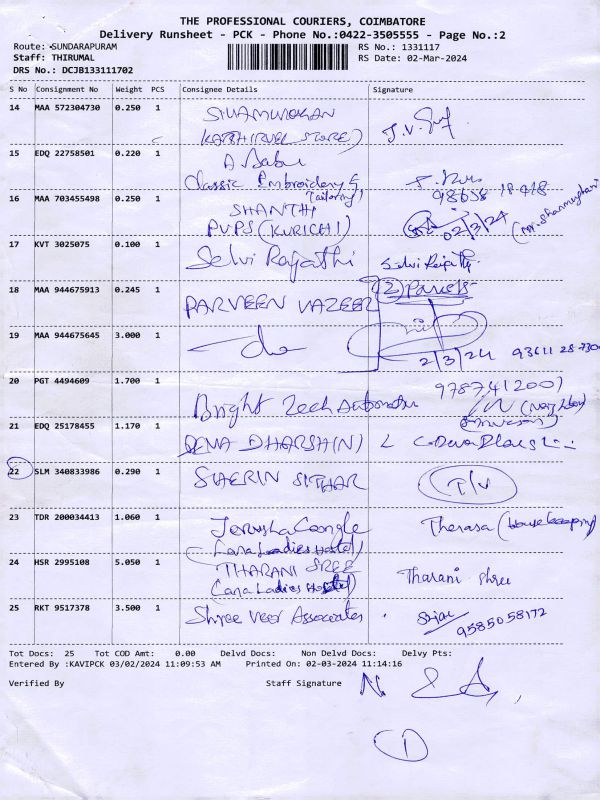 THE PROFESSIONAL COURIERS, COIMBATORE
Delivery Runsheet - PCK - Phone No.:0422-3505555 - Page No.:2
Route: SUNDARAPURAM RS No.: 1331117
Staff: THIRUMAL RS Date: 02-Mar-2024
DRS No.: DCJB133111702
S No Consignment No Weight PCS Consignee Details Signature
14 MAA 572304730 0.250 1 SIVAMURUGAN
KATHIRVEL STORE) J.V.
15 EDQ 22758501 0.220 1 A Babu
Classic Embroidery &
Tailoring) 98658 18418
16 MAA 703455498 0.250 1 SHANTHI
PVPS (KURICHI) 02/3/24 (Mr. Shanmughan)
17 KVT 3025075 0.100 1 Selvi Rajathi Selvi Rajathi
18 MAA 944675913 0.245 1 PARVEEN VAZEER (2) Parcels
19 MAA 944675645 3.000 1 2/3/24 93611 28-730
20 PGT 4494609 1.700 1 Bright Tech Automation 9787412001
(Neighbour)
21 EDQ 25178455 1.170 1 DEVA DHARSHINI
22 SLM 340833986 0.290 1 SHERIN SITHAR P/V
23 TDR 200034413 1.060 1 Jerusha
Lara Ladies Hostel) Therasa (House keeping)
24 HSR 2995108 5.050 1 THARANI SREE
(Lara Ladies Hostel) Tharani Shree
25 RKT 9517378 3.500 1 Shree Veer Associates 9585058172
Tot Docs: 25 Tot COD Amt: 0.00 Delvd Docs: Non Delvd Docs: Delvy Pts:
Entered By :KAVIPCK 03/02/2024 11:09:53 AM Printed On: 02-03-2024 11:14:16
Verified By Staff Signature
1